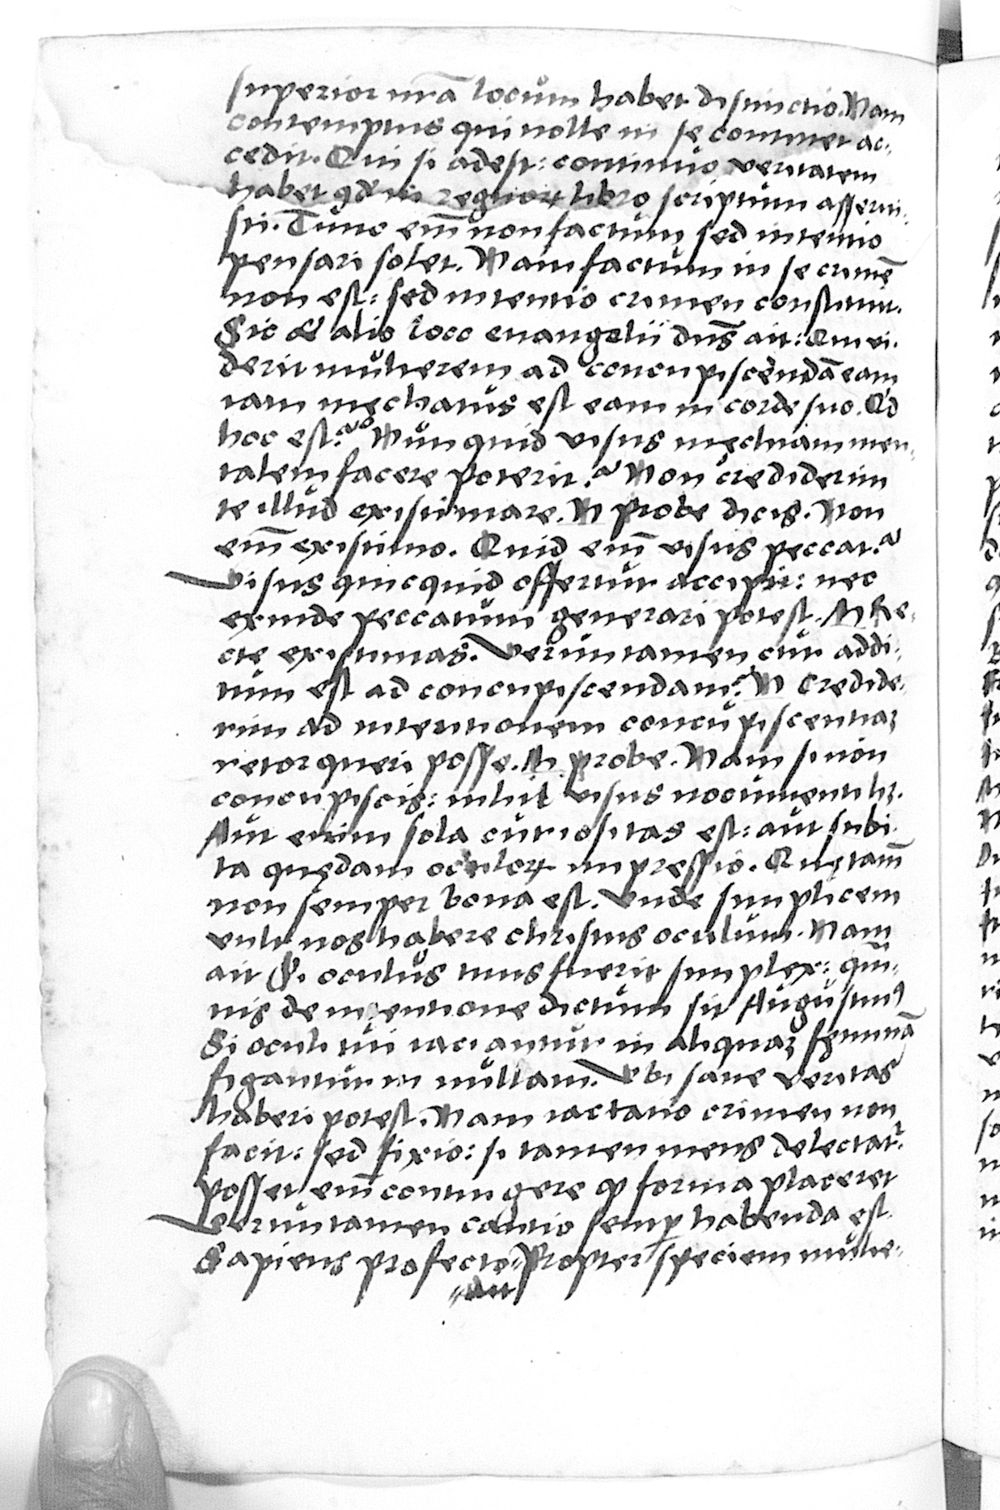 superior nr̃a locum habet distinctio. Nam
contemptus qui nolle in se continet ac-
cedit. Qui si adest: continuo veritatem
habet qđ in regnoꝝ libro scriptum asserui-
sti. Tunc em̃ non factum sed intentio
pensari solet. Nam factum in se crimē
non est: sed intentio crimen constituit.
Sic & alio loco euangelii dñs ait: Qui vi-
derit mulierem ad concupiscendā eam
iam mechatus est eam in corde suo. Qd
hoc est? Nunquid visus mechiam men-
talem facere poterit? Non crediderim
te illud existimare. N probe dicis. Non
em̃ existimo. Quid em̃ visus peccat?
Visus quicquid offertur accipit: nec
exinde peccatum generari potest. M Re-
cte existimas. Veruntamen cur addi-
tum est ad concupiscendam? N Credide-
rim ad intentionem concupiscentiaꝫ
retorqueri posse. M probe. Nam si non
concupiscis: nihil visus nocumenti hꝫ.
Aut enim sola curiositas est: aut subi-
ta quędam oculoꝝ impressio. Quę tam̃
non semper bona est. Unde simplicem
vult nos habere christus oculum. Nam
ait Si oculus tuus fuerit simplex: quī-
nis de intentione dictum sit Augustinꝰ
Si oculi tui iaciantur in aliquaꝫ feminā
figantur in nullam. Ubi sane veritas
haberi potest. Nam iactatio crimen non
facit: sed fixio: si tamen mens delectat᷑.
posset em̃ contingere ꝙ forma placeret
Veruntamen cautio semꝑ habenda est
Sapiens profecto. Propter speciem mulie-
ait